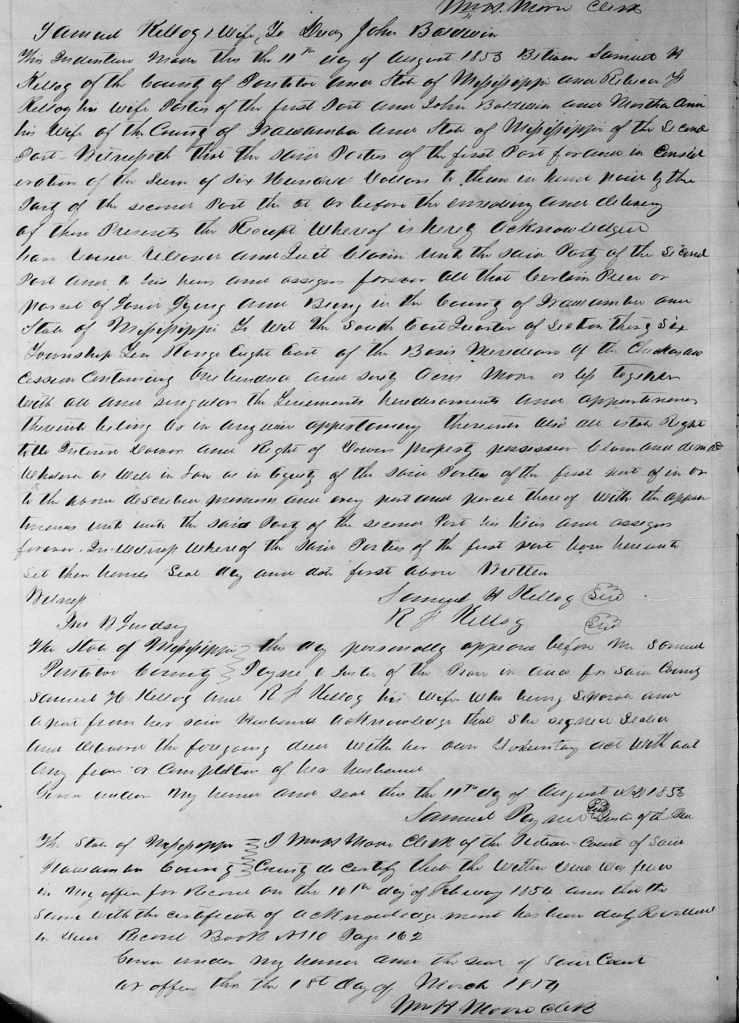 Wm H. Moore Clerk
Samuel Kellog & Wife To Deed John Baldwin
This Indenture Made this the 11th day of August 1853 Between Samuel H
Kellog of the County of Pontotoc and State of Mississippi and Rebeca J
Kellog his wife Parties of the first Part and John Baldwin and Martha Ann
his Wife of the County of Itawamba and State of Mississippi of the Second
Part Witnesseth that the said Parties of the first Part for and in Consid
eration of the Sum of Six Hundred Dollars to them in hand paid by the
Party of the second Part the at or before the ensealing and delivery
of these Presents the Receipt Whereof is hereby acknowledged
have Release and Quit Claim unto the said Party of the Second
Part and to his heirs and assigns forever all that Certain Piece or
parcel of Land Lying and Being in the County of Itawamba and
State of Mississippi To Wit The South East Quarter of Section thirty Six
Township Ten Range Eight East of the Basis Meredian of the Chickasaw
Cession Containing One hundred and sixty Acres More or less together
With all and singular the Tenements hereditaments and appurtenances
thereunto belong in any wise appertaining thereunto also all estate Right
title Interest Dower and Right of Dower property possession Claim and demand
Whatsoever as Well in Law as in Equity of the said Parties of the first part of in or
to the above described premises and every part and parcel thereof With the appur
tenances unto the said Party of the second Part his heirs and assigns
forever. In Witness Whereof the Said Parties of the first part have hereunto
Set their hands Seal day and date first above Written
Witness Samuel H Kellog Seal
Lindsey R J Kellog Seal
The State of Mississippi the day personally appeared before Me Samuel
Pontotoc County Payne a Justice of the Peace in and for said County
Samuel H Kellog and R J Kellog his Wife Who being Separate and
apart from her said Husband acknowledge that she signed Sealed
and delivered the foregoing deed With her own Voluntary act With out
any fear or Compulsion of her husband
Given under My hand and seal this the 11th day of August AD 1853
Samuel Payne Seal Justice of the Peace
The State of Mississippi I Wm H Moore Clerk of the Probate Court of Said
Itawamba County County do certify that the Within Deed Was filed
in My office for Record on the 10th day of February 1854 and that the
Same With the certificate of acknowledgement has been duly Recorded
in Deed Record Book No 10 Page 162
Given under My hand and the seal of Said Court
at office this the 18th day of March 1854
Wm H Moore Clerk